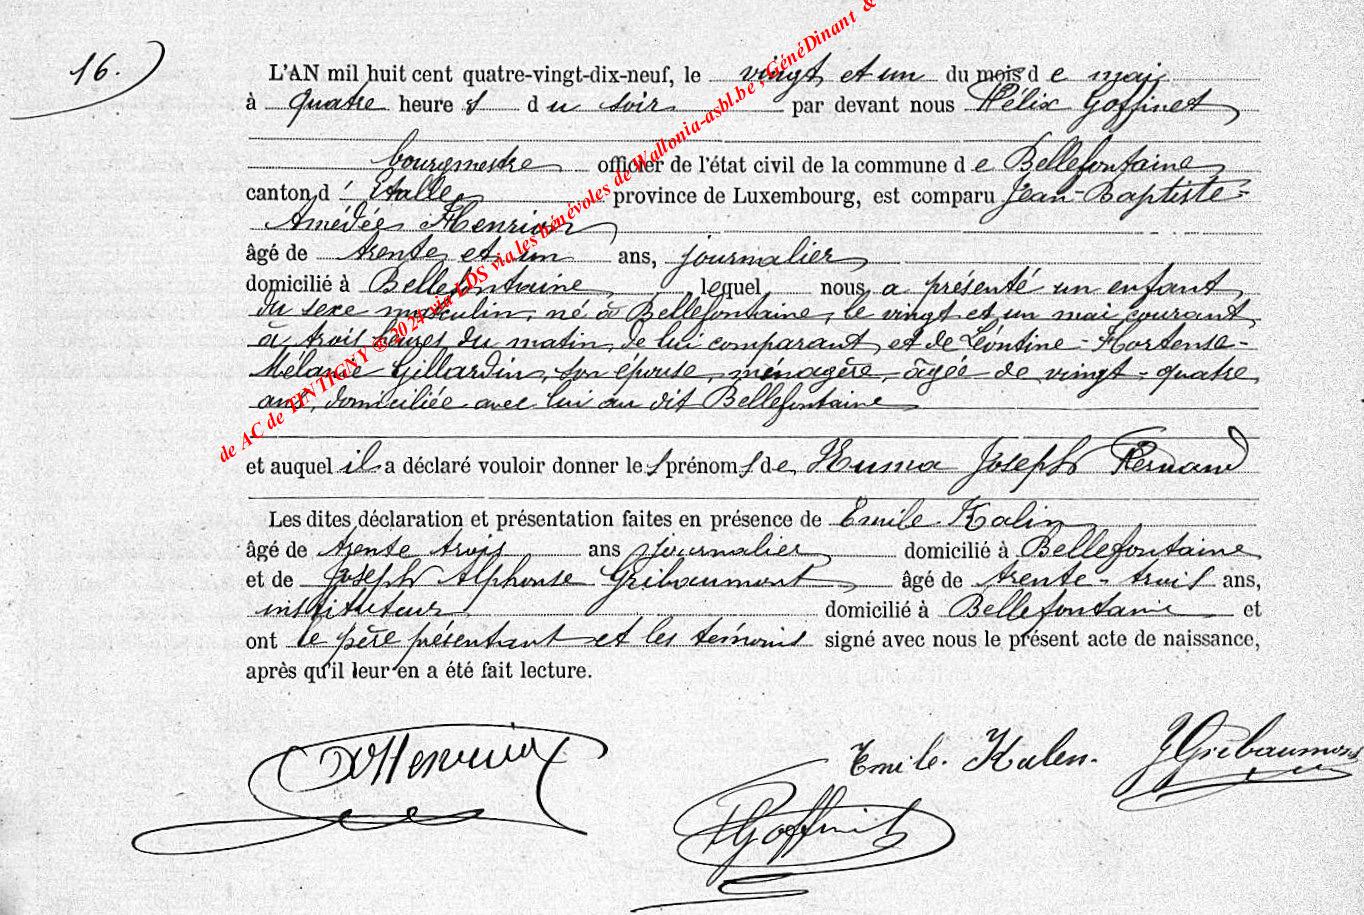 16.)
L'AN mil huit cent quatre-vingt-dix-neuf, le vingt et un du mois de mai
à quatre heures du soir par devant nous Félix Goffinet
bourgmestre officier de l'état civil de la commune de Bellefontaine
canton d'Etalle province de Luxembourg, est comparu Jean-Baptiste-
Amédée Henrion
âgé de trente et un ans, journalier
domicilié à Bellefontaine, lequel nous a présenté un enfant
du sexe masculin, né à Bellefontaine, le vingt et un mai courant
à trois heures du matin, de lui comparant et de Léontine-Hortense-
Mélanie Gillardin, son épouse, ménagère, âgée de vingt-quatre
ans, domiciliée avec lui au dit Bellefontaine
et auquel il a déclaré vouloir donner les prénoms de Numa Joseph Fernand
Les dites déclaration et présentation faites en présence de Emile Kalin
âgé de trente trois ans journalier domicilié à Bellefontaine
et de Joseph Alphonse Gribaumont âgé de trente-trois ans,
instituteur domicilié à Bellefontaine et
ont le père présentant et les témoins signé avec nous le présent acte de naissance,
après qu'il leur en a été fait lecture.
Henrion
Emile. Kalen.
J Gribaumont
F Goffinet
de AC de TINTIGNY ® 2024 via LDS via les bénévoles de Wallonia-asbl.be, GénéDinant &